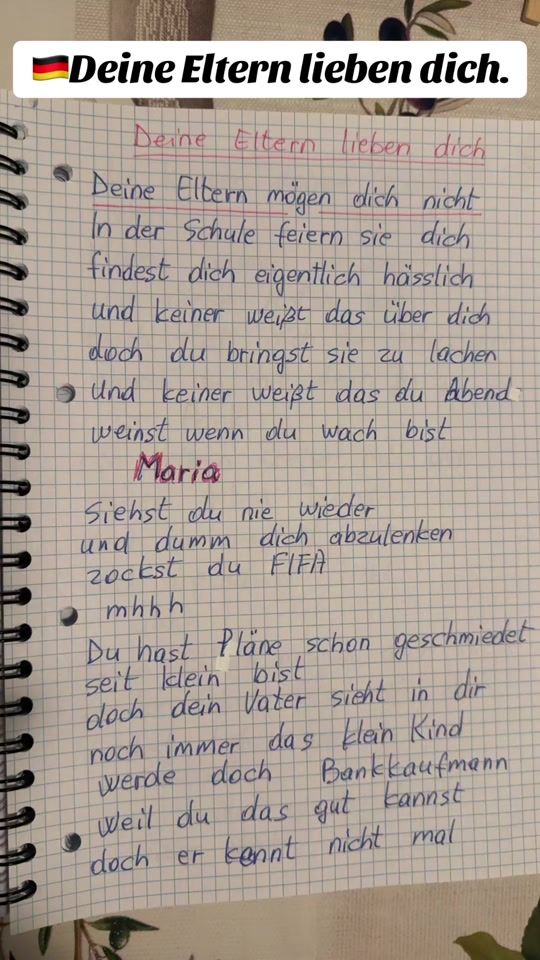 🇩🇪Deine Eltern lieben dich.
Deine Eltern lieben dich
Deine Eltern mögen dich nicht
In der Schule feiern sie dich
findest dich eigentlich hässlich
und keiner weißt das über dich
doch du bringst sie zu lachen
und keiner weißt das du Abend
weinst wenn du wach bist
Maria
Siehst du nie wieder
und dumm dich abzulenken
zockst du FIFA
mhhh
Du hast Pläne schon geschmiedet
seit klein bist
doch dein Vater sieht in dir
noch immer das klein Kind
werde doch Bankkaufmann
weil du das gut kannst
doch er kennt nicht mal